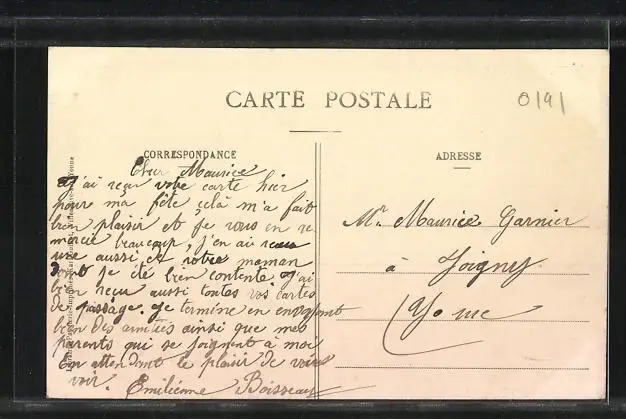 CARTE POSTALE
0191
CORRESPONDANCE
ADRESSE
Cher Maurice
J'ai reçu votre carte hier
pour ma fête, celà m'a fait
bien plaisir et je vous en re
mercie beaucoup, j'en ai reçu
une aussi de votre maman
dont je été bien contente J'ai
bien reçu aussi toutes vos cartes
de passage. Je termine en envoyant
bien des amitiés ainsi que mes
parents qui se joignent à moi
En attendant le plaisir de vous
voir. Emilienne Boisseau
Mr. Maurice Garnier
à Joigny
Yonne